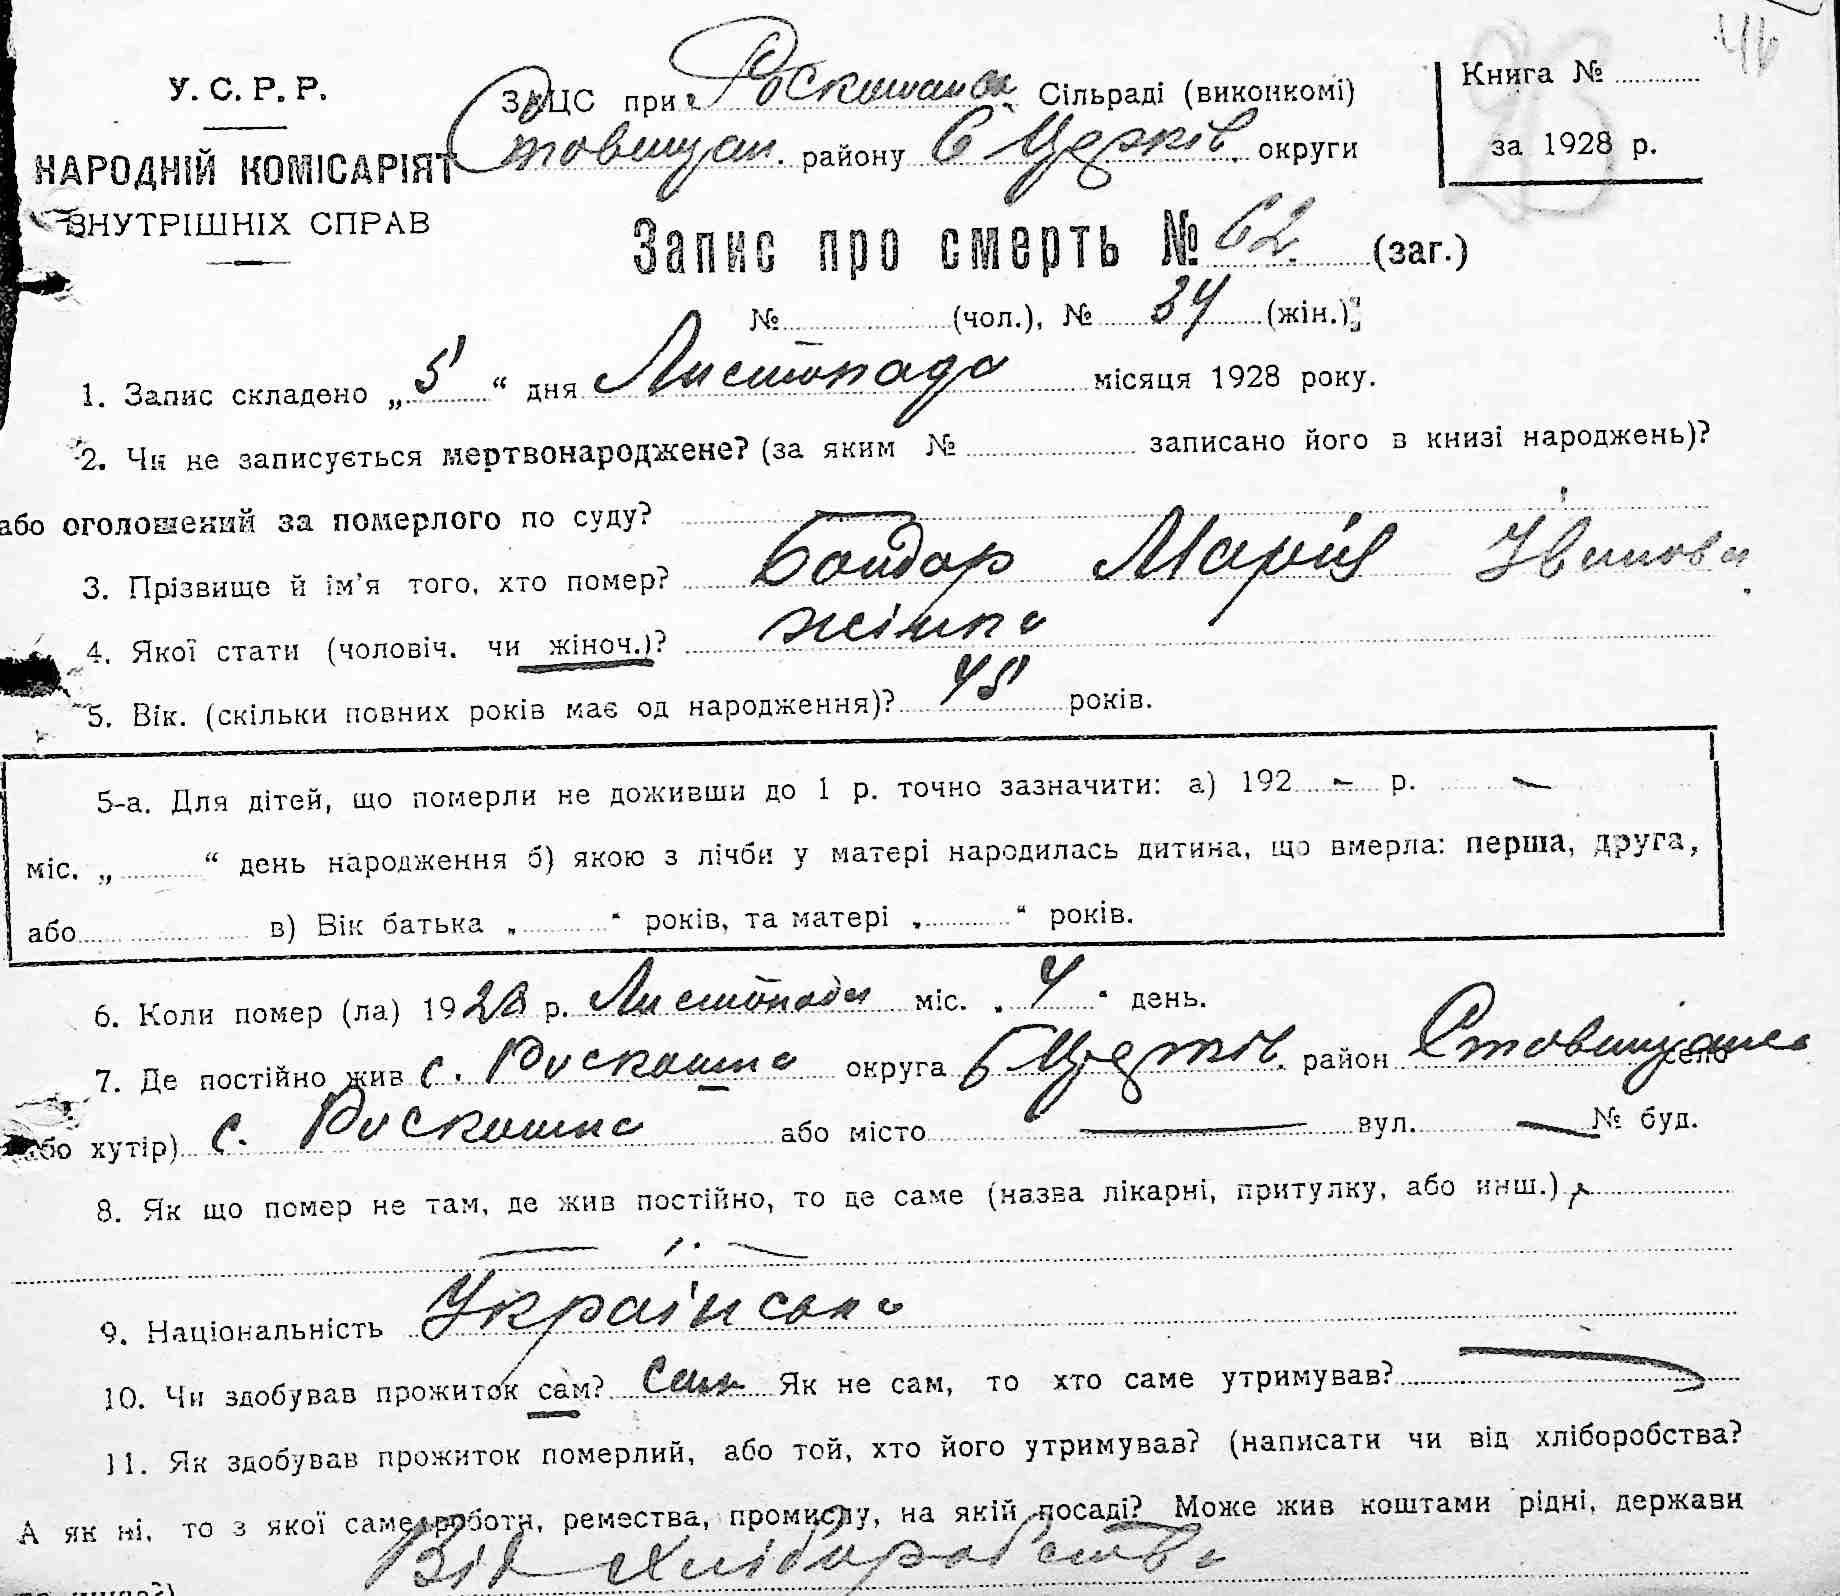 46
У. С. Р. Р.
НАРОДНІЙ КОМІСАРІЯТ
ВНУТРІШНІХ СПРАВ
ЗАЦС при Роскошан Сільраді (виконкомі)
Ставищан. району Б Церків. округи
Книга №
за 1928 р.
Запис про смерть № 62. (заг.)
№ (чол.), № 34 (жін.)
1. Запис складено „ 5 “ дня Листопада місяця 1928 року.
2. Чи не записується мертвонароджене? (за яким № записано його в книзі народжень)?
або оголошений за померлого по суду?
3. Прізвище й ім'я того, хто помер? Бондар Марія Іванова
4. Якої стати (чоловіч. чи жіноч.)? жінка
5. Вік. (скільки повних років має од народження)? 45 років.
5-а. Для дітей, що померли не доживши до 1 р. точно зазначити: а) 192 – р. –
міс. „ “ день народження б) якою з лічби у матері народилась дитина, що вмерла: перша, друга,
або в) Вік батька „ “ років, та матері „ “ років.
6. Коли помер (ла) 1928 р. Листопада міс. „ 4 “ день.
7. Де постійно жив с. Роскошна округа Б Церків. район Ставищане село
або хутір) с. Роскошна або місто — вул. — № буд.
8. Як що помер не там, де жив постійно, то де саме (назва лікарні, притулку, або инш.)
9. Національність Українська
10. Чи здобував прожиток сам? Сам Як не сам, то хто саме утримував? —
11. Як здобував прожиток померлий, або той, хто його утримував? (написати чи від хліборобства?
А як ні, то з якої саме роботи, ремества, промислу, на якій посаді? Може жив коштами рідні, держави
Від хліборобства